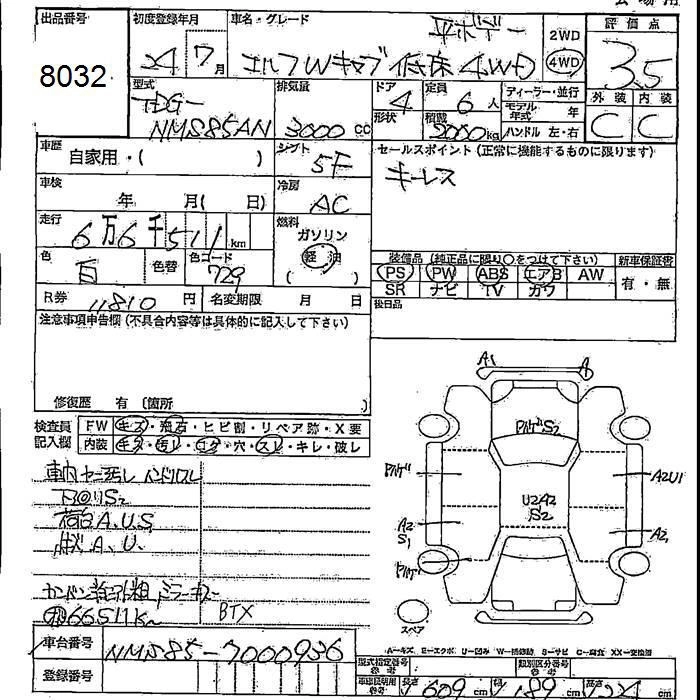 会場用
出品番号 初度登録年月 車名・グレード 評価点
8032 24年 7月 エルフWキャブ低床4WD 平ボデー 2WD 4WD 3.5
型式 排気量 ドア 定員 ディーラー・並行 外装 内装
TDG- 4 6人 モデル年式 年 C C
NMS85AN 3000cc 形状 積載 2000kg ハンドル 左・右
車歴 自家用・( ) シフト 5F セールスポイント (正常に機能するものに限ります)
キーレス
車検 年 月( 日) 冷房 AC
走行 6万6千511km 燃料 ガソリン
軽油
( )
色 白 色替 色コード 729
装備品 (純正品に限り○をつけて下さい) 新車保証書
PS PW ABS エアB AW 有・無
SR ナビ TV カワ
R券 11810円 名変期限 月 日 後日品
注意事項申告欄(不具合内容等は具体的に記入して下さい)
修復歴 有 〔箇所 〕
検査員記入欄 FW キズ・飛石・ヒビ割・リペア跡・X要
内装 キズ・汚レ・コゲ・穴・スレ・キレ・破レ
A1 A
S2
A2U1
U2A2
S2
A2
S1
A2
車内 シー汚レ ハンドルスレ
荷台A.U.S
状A.U.
66511K~
BTX
スペア
A=キズ E=エクボ U=凹み W=補修跡 S=サビ C=腐食 XX=交換済
車台番号 NMS85-7000936
登録番号
型式指定番号 参考 類別区分番号 参考
車庫証明用 参考 長さ 609cm 幅 189cm 高さ cm